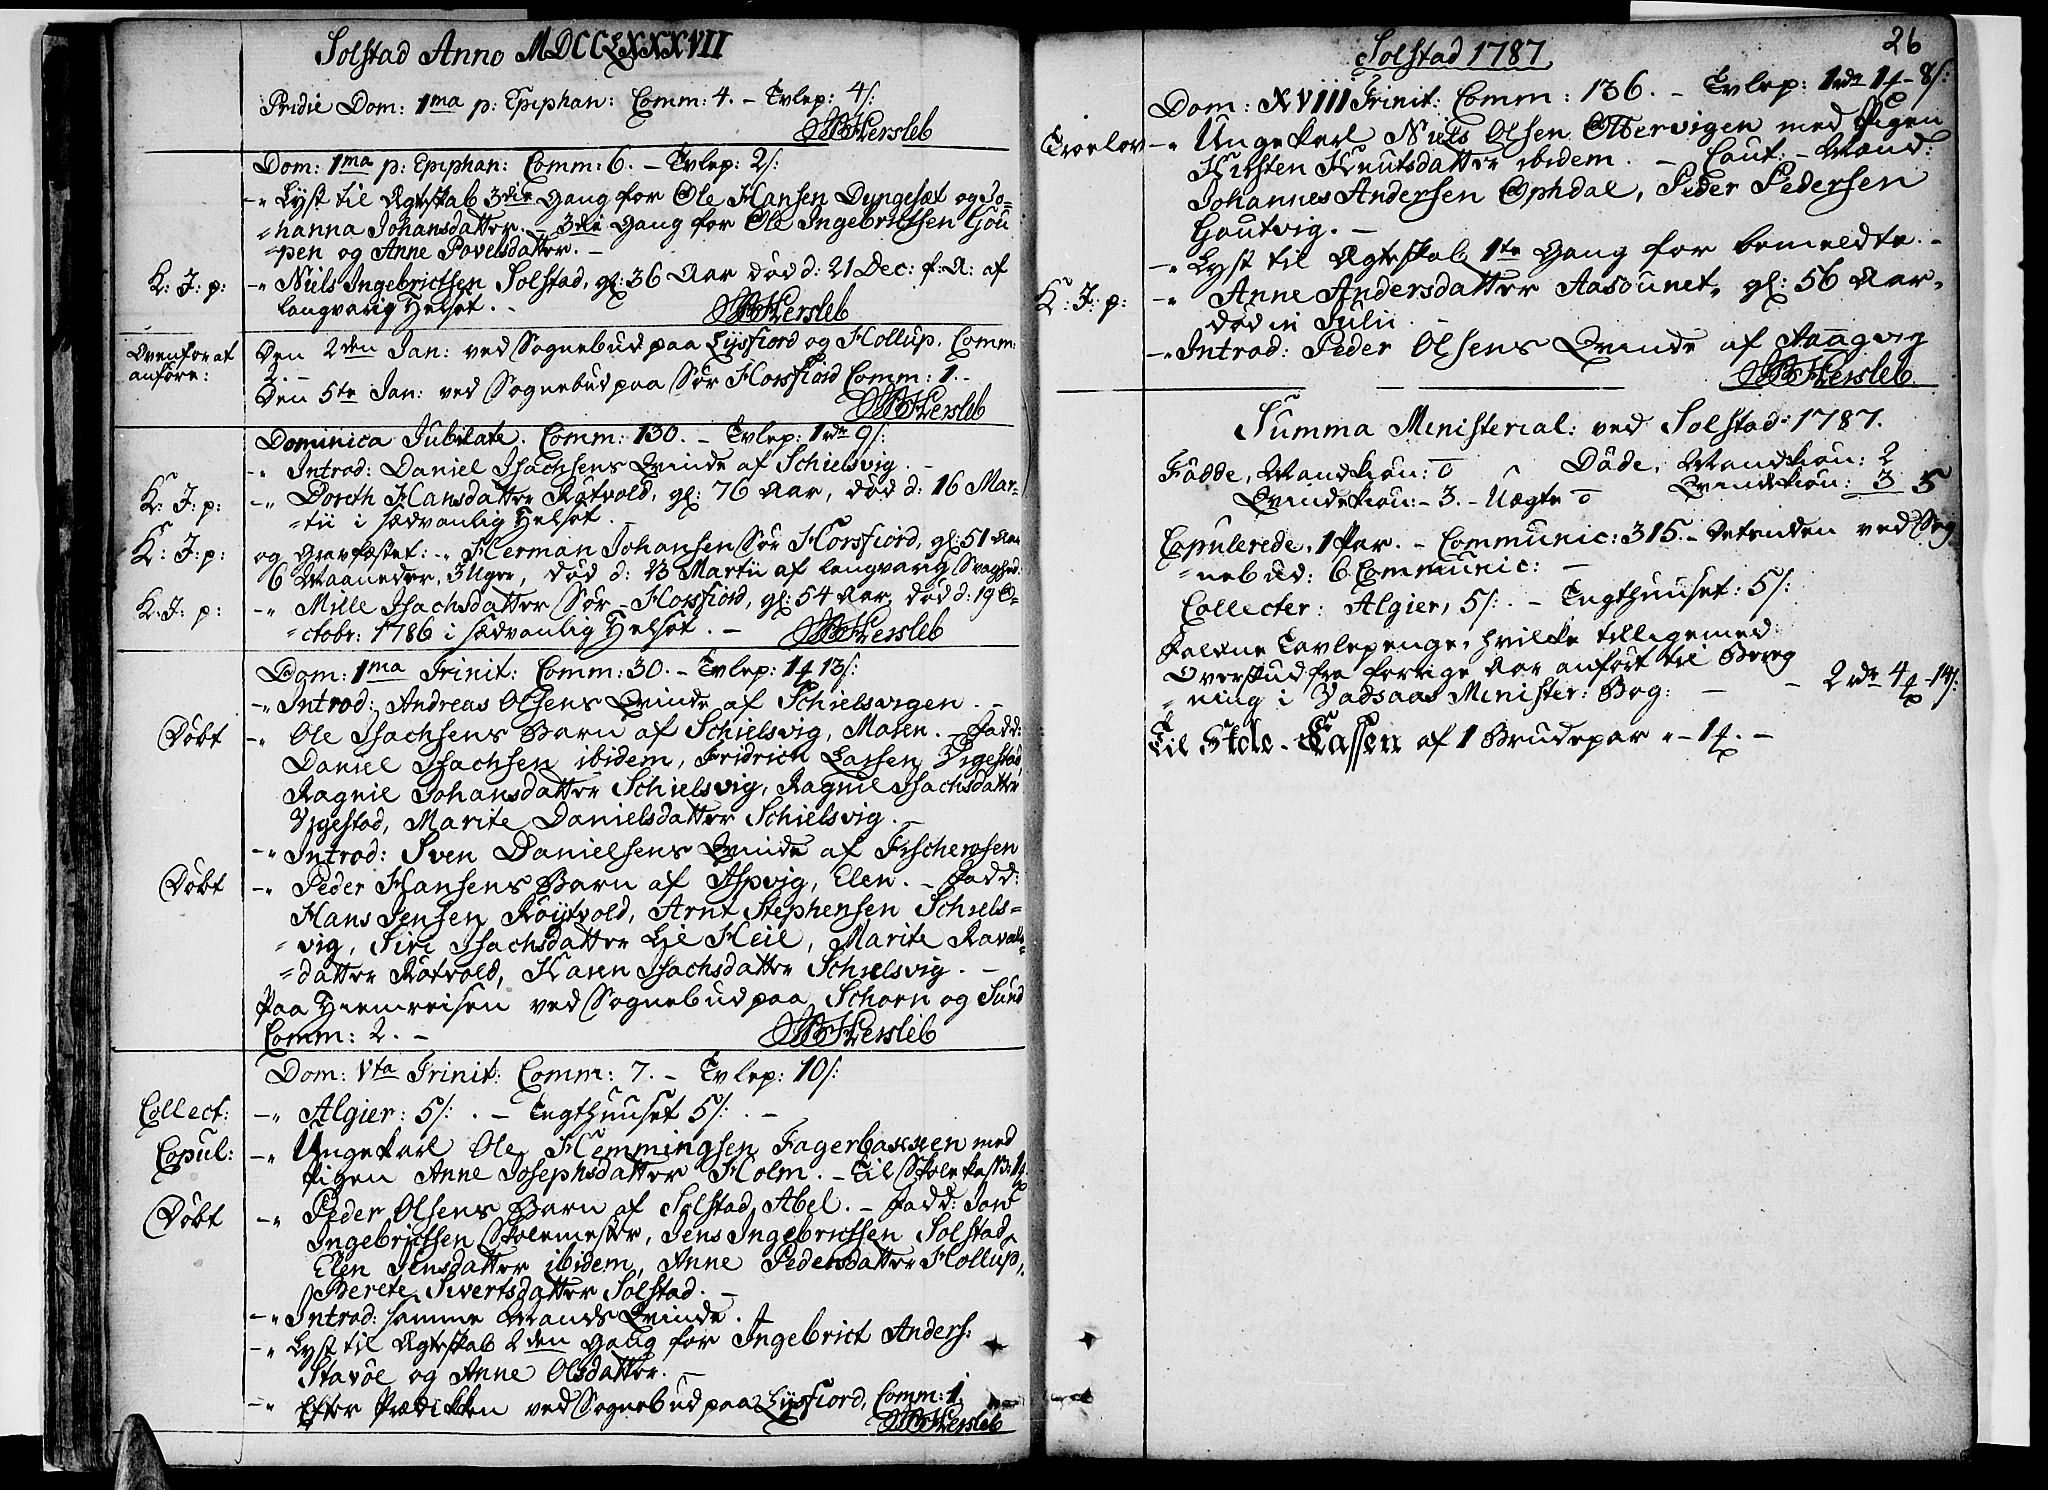 Solstad Anno MDCCLXXXVII
Pridie Dom: 1ma p: Epiphan: Comm: 4. – Tvlep: 4/:
Hersleb
Dom: 1ma p: Epiphan: Comm: 6. – Tvlep: 2/:
–" Lyst til Ægteskab 3die Gang for Ole Hansen Dyngeset og Jo-
=hanna Johansdatter. – 3die Gang for Ole Ingebrictsen Gou
=pen og Anne Povelsdatter. –
K: J: p: –" Niels Ingebrictsen Solstad, gl: 36 Aar død d: 21 Dec: f: A: af
langvarig Helsot. –
Hersleb
Ovenfor at anføre: Den 2den Jan: ved Sognebud paa Lysfiord og Hollup. Comm:
2. –
Den 5te Jan: ved Sognebud paa Sør Horsfiord Comm: 1. –
Hersleb
Dominica Jubilate. Comm: 130. – Tvlep: 1 rdr 9/:
–" Introd: Daniel Isachsens Qvinde af Schielsvig. –
K: J: p: –" Doreth Hansdatter Røtvold, gl: 76 Aar, død d: 16 Mar-
=tii i sædvanlig Helsot.
K: J: p: og Gravfæstet: –" Herman Johansen Sør Horsfiord, gl: 51 Aar
6 Maaneder, 3 Uger, død d: 23 Martii af langvarig Svaghed:
K: J: p: –" Mille Isachsdatter Sør-Horsfiord, gl: 54 Aar, død d: 19 O-
=ctobr: 1786 i sædvanlig Helsot. –
Hersleb
Dom: 1ma Trinit: Comm: 30. – Tvlep: 1 13/:
–" Introd: Andreas Olsens Qvinde af Schielsvigen. –
Døbt –" Ole Isachsens Barn af Schielsvig, Maren. – Fadd:
Daniel Isachsen ibidem, Fridrich Larsen Vigestad,
Ragnil Johansdatter Schielsvig, Ragnil Isachsdatter
Vigestad, Marite Danielsdatter Schielsvig. –
–" Introd: Sven Danielsens Qvinde af Fischerosen
Døbt –" Peder Hansens Barn af Ispvig, Elen. – Fadd:
Hans Jensen Røytvold, Arnt Stephensen Schiels=
=vig, Siri Isachsdatter Lie Heil, Marite Ravals
=datter Røtvold, Karen Isachsdatter Schielsvig. –
Paa Hiemreisen ved Sognebud paa Schorn og Sund
Comm: 2. –
Hersleb
Dom: Vta Trinit: Comm: 7. – Tvlep: 10/:
Collect: –" Algier: 5/: . – Tugthuuset 5/: . –
Copul: –" Ungekarl Ole Hemmingsen Fagerbakken med
Pigen Anne Josephsdatter Holm. – Til Skolekassen 1
Døbt –" Peder Olsens Barn af Solstad, Abel. – Fadd:
Ingebrictsen Skolemester, Jens Ingebrictsen Solstad,
Elen Jensdatter ibidem, Anne Pedersdatter Hollup,
Berete Sivertsdatter Solstad. –
–" Introd: samme Mands Qvinde.
–" Lyst til Ægteskab 2den Gang for Ingebrict Anders:
Stavøe og Anne Olsdatter. –
–" Efter Prædikken ved Sognebud paa Lysfiord, Comm: 1
Hersleb
26
Solstad 1787
Dom: XVIII Trinit: Comm: 136. – Tvlep: 1 rdr 1 – 8/:
Troelov –" Ungekarl Niels Olsen Ottervigen med Pigen
Kirsten Knutsdatter ibidem. – Caut. – Mænd:
Johannes Andersen Ophdal, Peder Pedersen
Goutvig. –
–" Lyst til Ægteskab 1te Gang for bemeldte. –
K: J: p: –" Anne Andersdatter Aasounet, gl: 56 Aar,
død in Julii.
–" Introd: Peder Olsens Qvinde af Aaagvig
Hersleb
Summa Ministerial: ved Solstad 1787.
Fødde, Mandkiøn: 0 Døde, Mandkiøn: 2
Qvindekiøn: – 3. – Uægte 0 Qvindekiøn: 3 5
Copulerede, 1 Par. – Communic: 315. – Desuden ved Sog
=nebud: 6 Communic: –
Collecter: Algier, 5/: . – Tugthuuset: 5/:
Faldne Tavlepenge, hvilke tilligemed
Overskud fra forrige Aar anført til Bereg
=ning i Vadsaas Minister: Bog: – – 2 rdr 4 – 14/:
Til Skole-Cassen af 1 Brudepar " – 1 . –